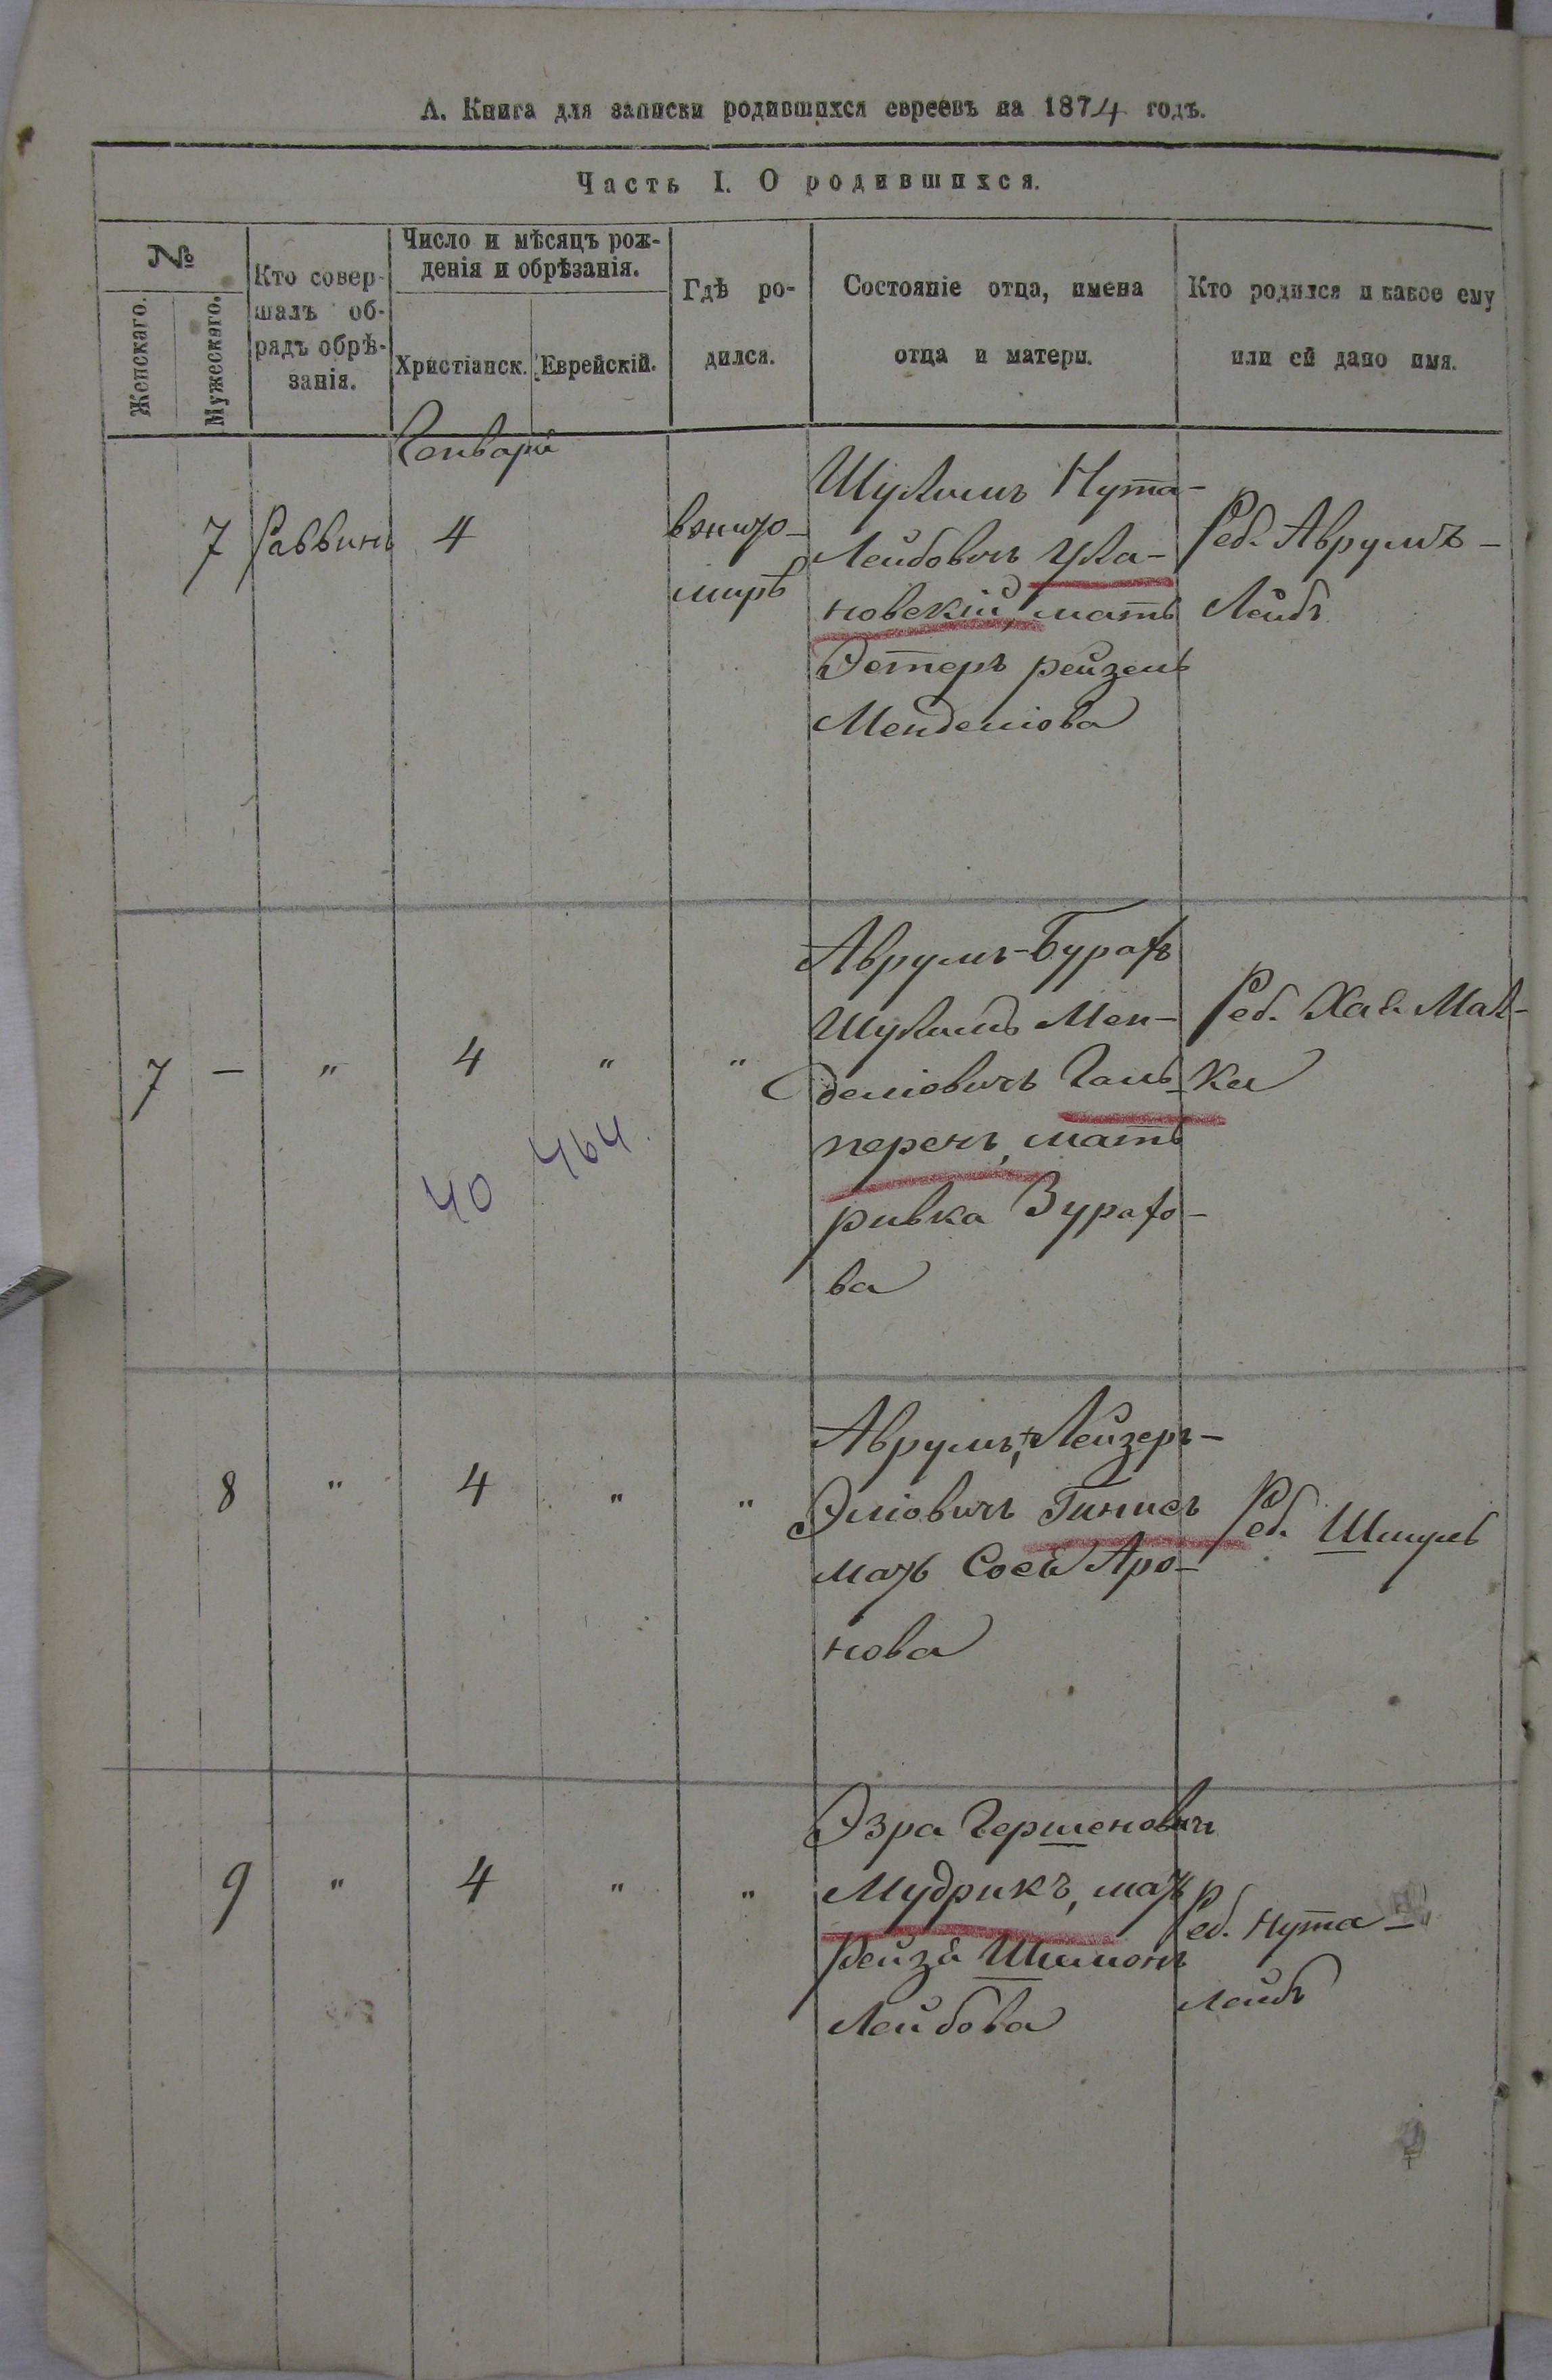 А. Книга для записки родившихся евреевъ на 1874 годъ.
Часть I. О родившихся.
№
Женскаго.
Мужескаго.
Кто совер-
шалъ об-
рядъ обрѣ-
занія.
Число и мѣсяцъ рож-
денія и обрѣзанія.
Христіанск.
Еврейскій.
Гдѣ ро-
дился.
Состояніе отца, имена
отца и матери.
Кто родился и какое ему
или ей дано имя.
Генваря
7 Раввинъ 4
вжито-
мирѣ
Шулимъ Нута-
Лейбовичъ Ула-
новскій, мать
Эстеръ рейзель
Менделіова
Реб. Аврумъ-
Лейбъ
7 — " 4 " "
40 464.
Аврумъ-
Шулимъ Мен-
деліовичъ Галь-
перенъ, мать
ривка
ва
Реб. Хая Мал-
ки
8 " 4 " "
Аврумъ, Лейзеръ-
Эліовичъ Гинисъ
мать Сося Аро-
нова
Реб. Шмуль
9 " 4 " "
Эзра Гершеновичъ
Мудрикъ, мать
Рейзя Шимонъ
Лейбова
Реб. Нута-
Лейбъ